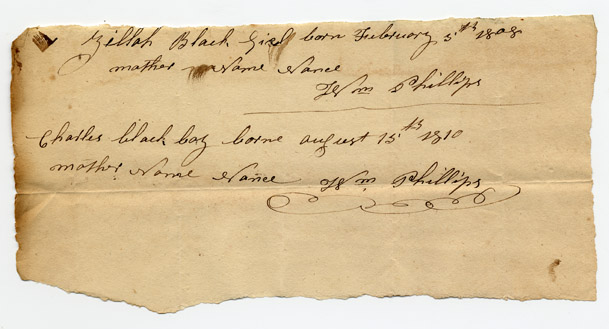 Zillah Black Girl born February 5th 1808
mother Name Nance
Wm Phillips
Charles black boy borne august 15th 1810
mother Name Nance Wm Phillips